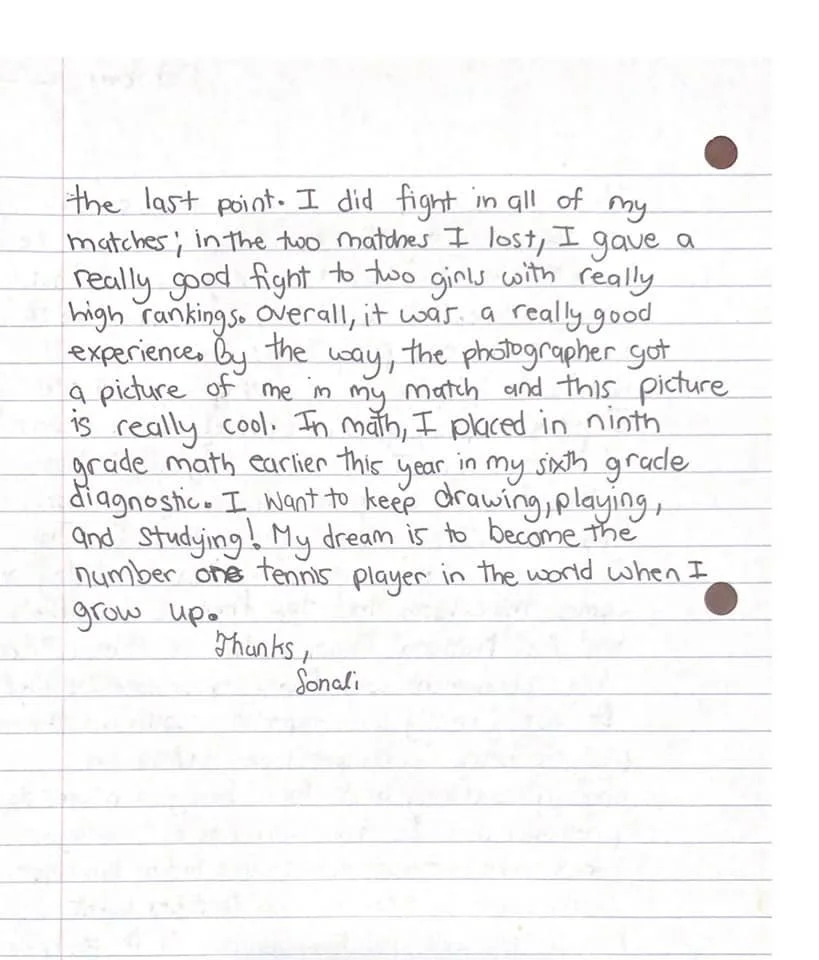 the last point. I did fight in all of my
matches; in the two matches I lost, I gave a
really good fight to two girls with really
high rankings. Overall, it was a really good
experience. By the way, the photographer got
a picture of me in my match and this picture
is really cool. In math, I placed in ninth
grade math earlier this year in my sixth grade
diagnostic. I want to keep drawing, playing,
and studying! My dream is to become the
number one tennis player in the world when I
grow up.
Thanks,
Sonali